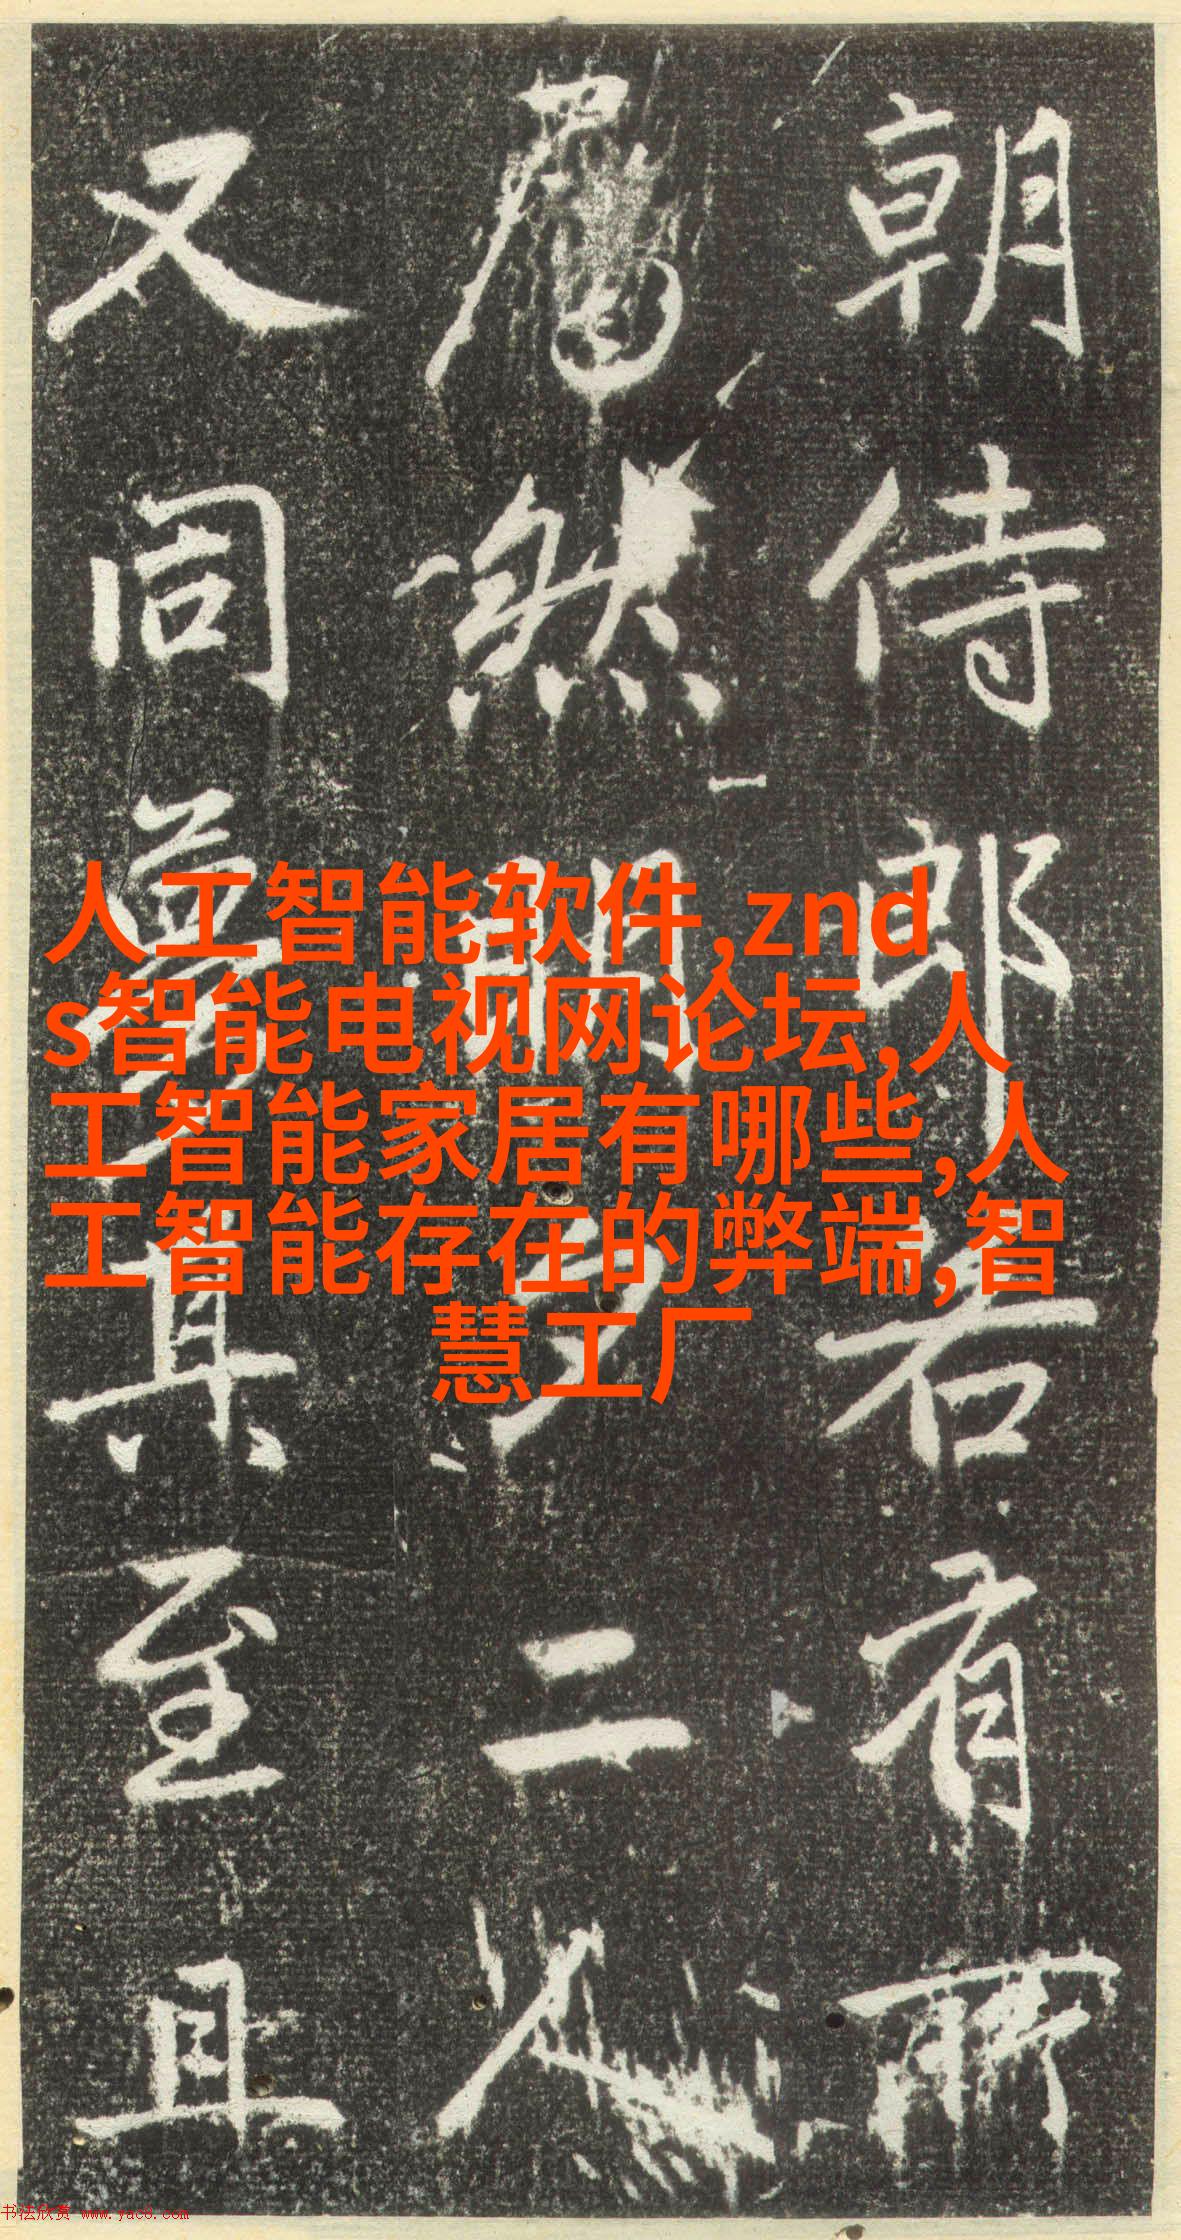 朝侍郎若有所
屬然明夕二人
又同夢其至且
人工智能软件,znd
s智能电视网论坛,人
工智能家居有哪些,人
工智能存在的弊端,智
慧工厂
书法欣赏 www.yac8.com